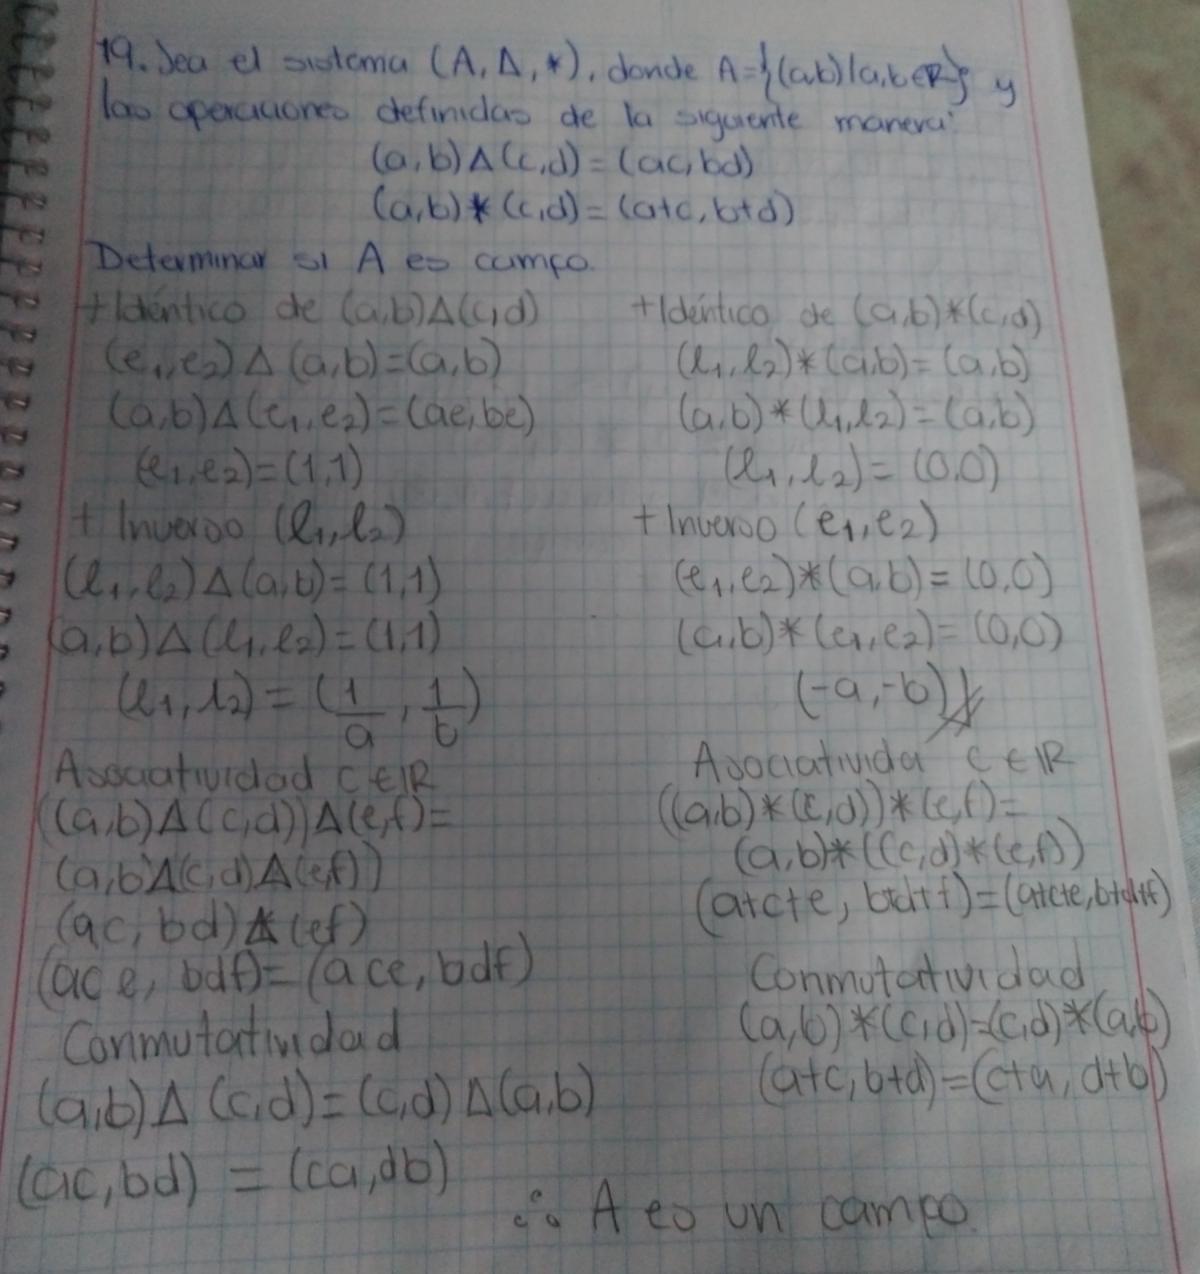 19. Sea el sistema (A, Δ, *), donde A={(a,b)|a,b∈R} y
las operaciones definidas de la siguiente manera:
(a,b)Δ(c,d)=(ac,bd)
(a,b)*(c,d)=(a+c, b+d)
Determinar si A es campo.
+Idéntico de (a,b)Δ(c,d)
(e₁,e₂)Δ(a,b)=(a,b)
(a,b)Δ(e₁,e₂)=(ae,be)
(e₁,e₂)=(1,1)
+ Inverso (l₁,l₂)
(l₁,l₂)Δ(a,b)=(1,1)
(a,b)Δ(l₁,l₂)=(1,1)
(l₁,l₂)=(1/a, 1/b)
Asociatividad C∈ℝ
((a,b)Δ(c,d))Δ(e,f)=
(a,bΔ(c,d)Δ(e,f))
(ac, bd)Δ(ef)
(ace, bdf)=(ace, bdf)
Conmutatividad
(a,b)Δ(c,d)=(c,d)Δ(a,b)
(ac,bd) = (ca,db)
+Idéntico de (a,b)*(c,d)
(l₁,l₂)*(a,b)=(a,b)
(a,b)*(l₁,l₂)=(a,b)
(l₁,l₂)=(0,0)
+Inverso (e₁,e₂)
(e₁,e₂)*(a,b)=(0,0)
(a,b)*(e₁,e₂)=(0,0)
(-a,-b)
Asociativida C∈ℝ
((a,b)*(c,d))*(e,f)=
(a,b)*((c,d)*(e,f))
(a+c+e, b+d+f)=(a+c+e, b+d+f)
Conmutatividad
(a,b)*(c,d)=(c,d)*(a,b)
(a+c, b+d)=(c+a, d+b)
∴ A es un campo.